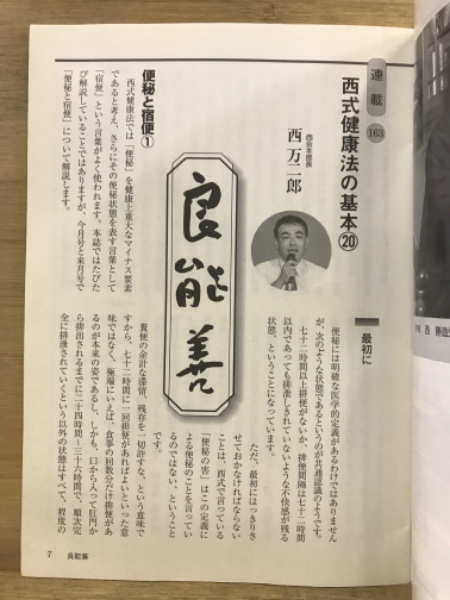 連載
163
西式健康法の基本⑳
西会本部長
西 万二郎
便秘と宿便①
西式健康法では「便秘」を健康上重大なマイナス要素
であると考え、さらにその便秘状態を表す言葉として
「宿便」という言葉がよく使われます。本誌ではたびた
び解説していることではありますが、今月号と来月号で
「便秘と宿便」について解説します。
良能善
最初に
便秘には明確な医学的定義があるわけではありません
が、次のような状態であるというのが共通認識のようです。
七十二時間以上排便がないか、排便間隔は七十二時間
以内であっても排泄しきれていないような不快感が残る
状態、ということになっています。
ただ、最初にはっきりさ
せておかなければならない
ことは、西式で言っている
「便秘の害」はこの定義に
よる便秘のことを言ってい
るのではない、ということ
です。
糞便の余計な滞留、残存を一切許すな、という意味で
すから、七十二時間に一回排便があればよいといった意
味ではなく、極端にいえば、食事の回数分だけ排便があ
るのが本来の姿であるし、しかも、口から入って肛門か
ら排出されるまでに二十四時間〜三十六時間で、順次完
全に排泄されていくという以外の状態はすべて、程度の
7 良能善
西 勝造